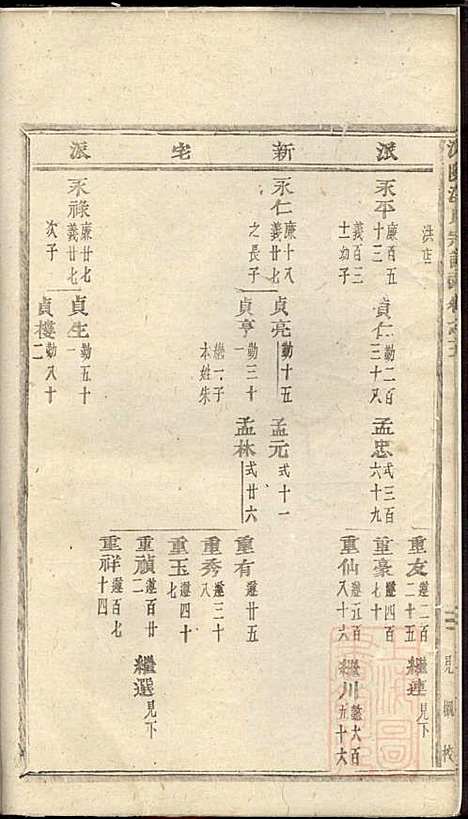 派 新 宅 派
洪店
永平 廉百五十三 義百三十一幼子
貞仁 勤二百三十八
孟忠 式三百六十九
重友 遜二百二十五
繼連 見下
重豪 遜四百七十
重仙 遜五百八十六
繼川 懿六百五十六
永仁 廉十八 義廿七之長子
貞亮 勤十五
孟元 式十一
貞亨 勤三十一 繼一子本姓朱
孟林 式廿六
重有 遜廿五
重秀 遜三十八
重玉 遜四十七
重禎 遜百廿二
繼選 見下
重祥 遜百七十四
永祿 廉廿七 義廿七次子
貞生 勤五十一
貞樓 勤八十二